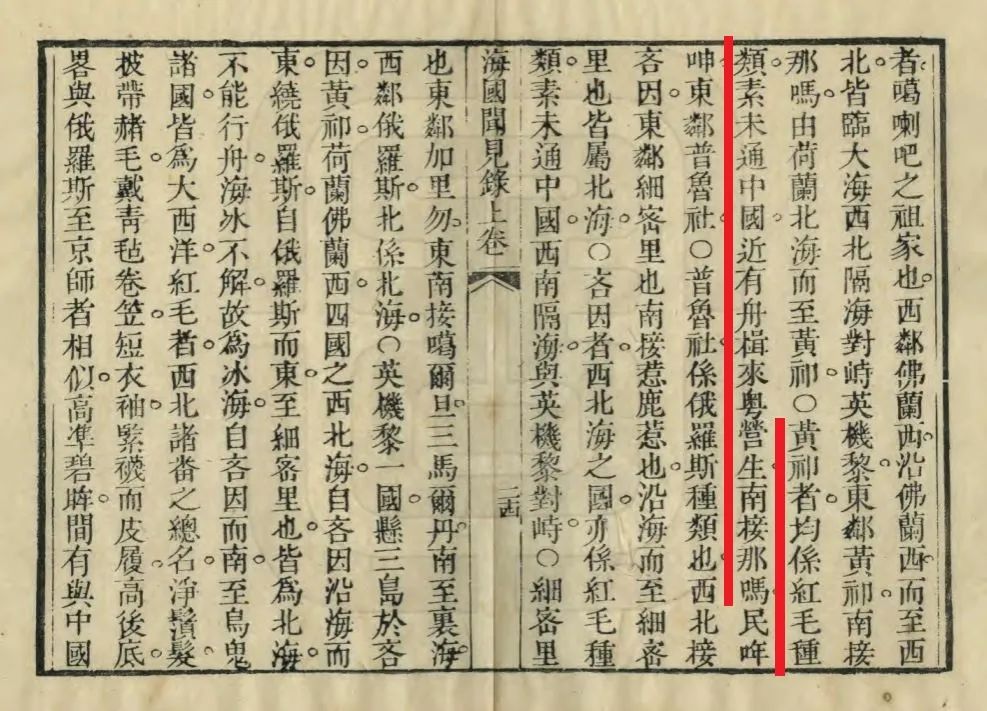 者噶喇吧之祖家也西鄰佛蘭西沿佛蘭西而至西
北皆臨大海西北隔海對峙英機黎東鄰黃祁南接
那嗎由荷蘭北海而至黃祁○黃祁者均係紅毛種
類素未通中國近有舟楫來粵營生南接那嗎民哖
呻東鄰普魯社○普魯社係俄羅斯種類也西北接
吝因東鄰細密里也南接惹鹿惹也沿海而至細密
里也皆屬北海○吝因者西北海之國亦係紅毛種
類素未通中國西南隔海與英機黎對峙○細密里
海國聞見錄上卷 二四
也東鄰加里勿東南接噶爾旦三馬爾丹南至裏海
西鄰俄羅斯北係北海○英機黎一國懸三島於吝
因黃祁荷蘭佛蘭西四國之西北海自吝因沿海而
東繞俄羅斯自俄羅斯而東至細密里也皆爲北海
不能行舟海冰不解故爲冰海自吝因而南至烏鬼
諸國皆爲大西洋紅毛者西北諸畨之總名淨鬚髮
披帶赭毛戴青毡卷笠短衣袖緊襪而皮履高後底
畧與俄羅斯至京師者相似高準碧眸間有與中國